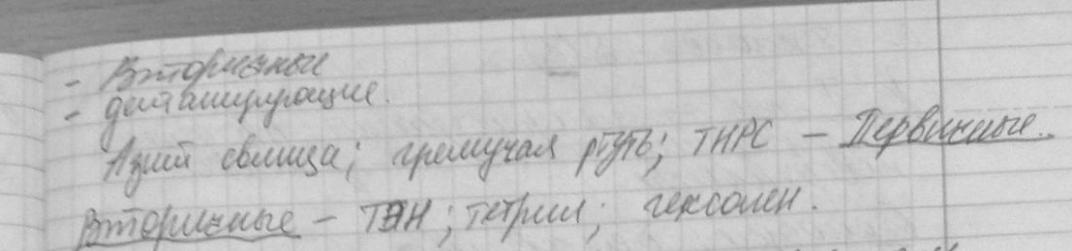 - Вторичные
- детанирующие.
Азид свинца; гремучая ртуть; ТНРС – Первичные.
Вторичные – ТЭН; тетрил; гексоген.